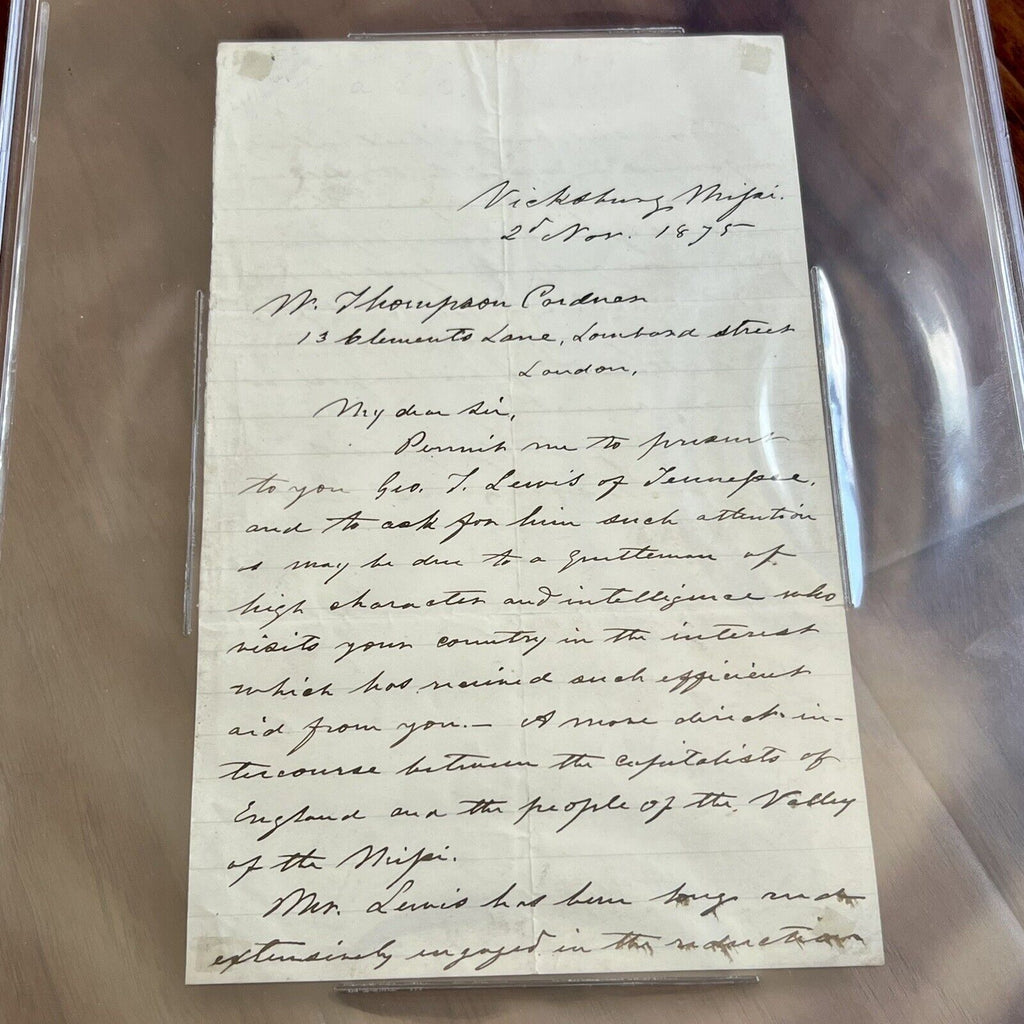 Vicksburg Missi.
2d Nov. 1875
W. Thompson Cordner
13 Clements Lane, Lombard street
London,
My dear Sir,
Permit me to present
to you Geo. T. Lewis of Tennessee,
and to ask for him such attention
as may be due to a gentleman of
high character and intelligence who
visits your country in the interest
which has received such efficient
aid from you.— A more direct in-
tercourse between the capitalists of
England and the people of the Valley
of the Missi.
Mr. Lewis has been long and
extensively engaged in the reduction